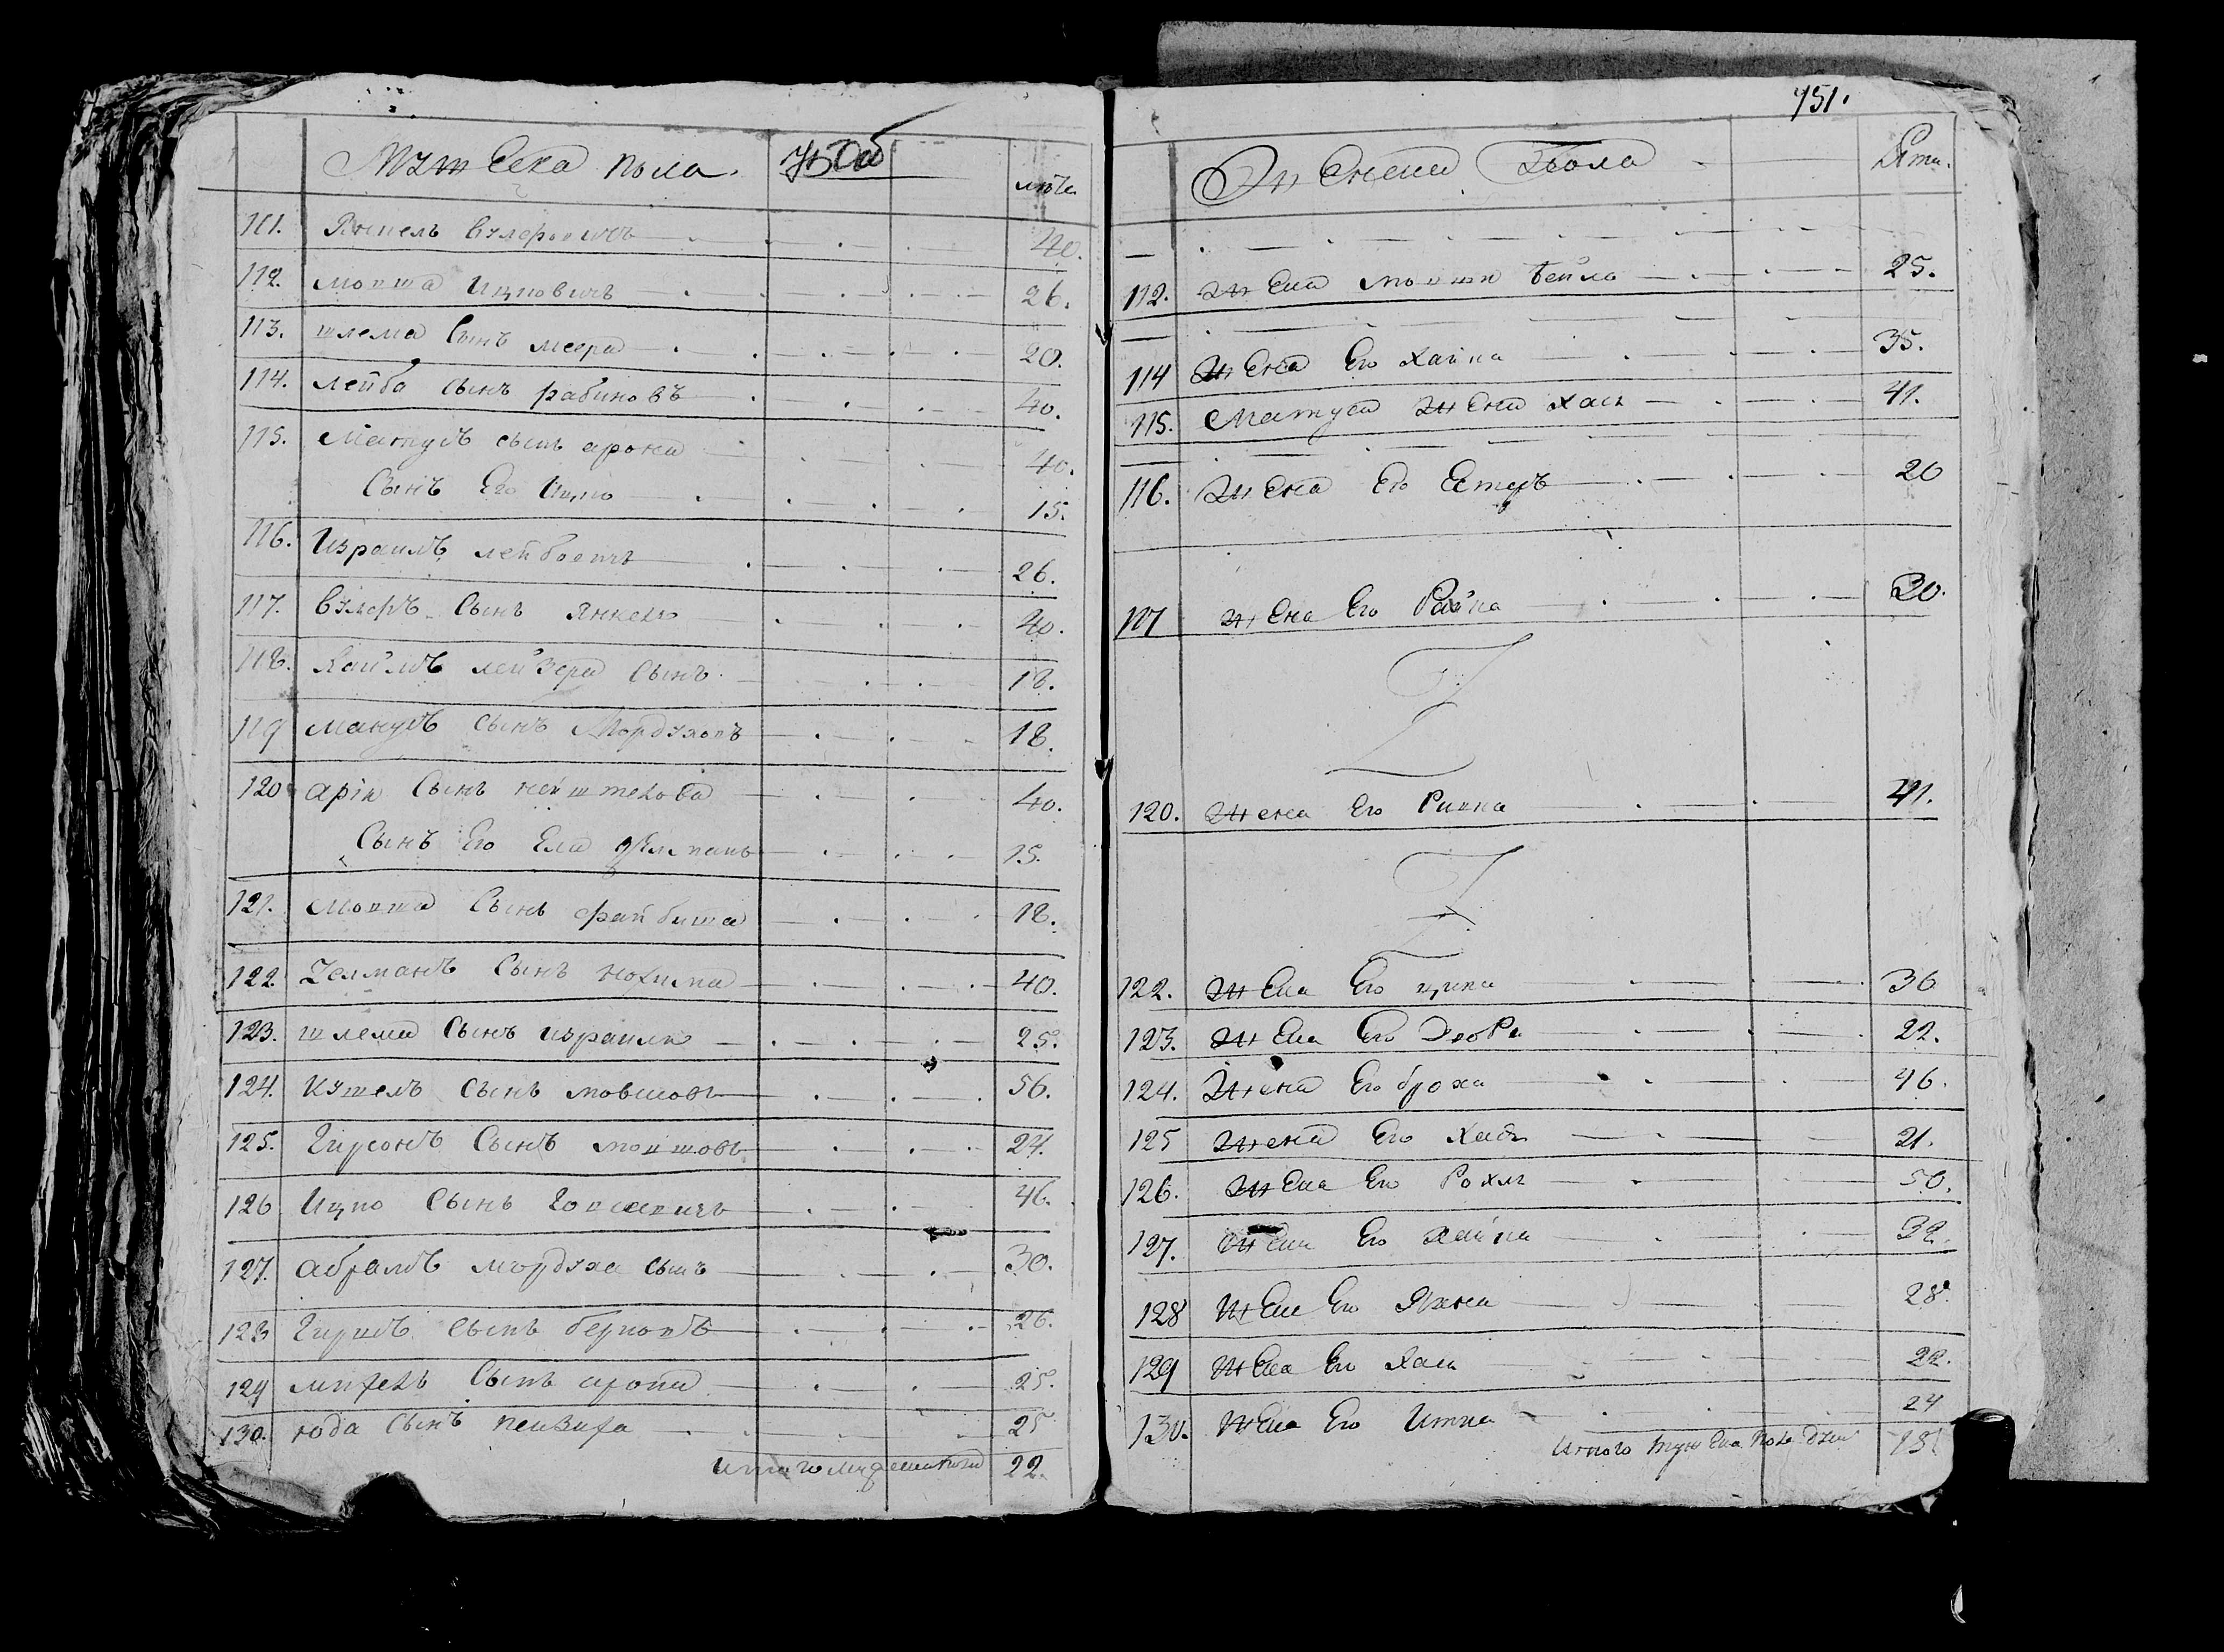 Мужеска пола.
лѣта
111. Янкель вулфовичъ 40.
112. мовша Ицковичъ 26.
113. шлема Сынъ меера 20.
114. лейба сынъ рабиновъ 40.
115. Матусъ сынъ арона 40.
Сынъ Его Ицко 15.
116. Израиль лейбовичъ 26.
117. вулфъ Сынъ Янкеля 40.
118. Хаимъ лейзера Сынъ 18.
119 манусъ сынъ Мордуховъ 18.
120 Сынъ 40.
Сынъ Его 15.
121. мовша Сынъ файбиша 18.
122. Зелманъ Сынъ нохима 40.
123. шлема Сынъ израиля 25.
124. Кушелъ Сынъ мовшовъ 56.
125. Гирсонъ Сынъ мовшовъ 24.
126 Ицко Сынъ 46.
127. абрамъ мордуха сынъ 30.
123 Гиршъ Сынъ берковъ 26.
129 Сынъ арона 25.
130. юда Сынъ 25
Итого 22.
751.
Женска Пола
Лѣта.
112. Жена мовши бейла 25.
114 Жена Его Хайка 35.
115. Матуса Жена хася 41.
116. Жена Его Естеръ 20
117 жена Его Райка 30.
120. Жена Его Ривка 41.
122. Жена Его ципа 36
123. Жена Его 22.
124. Жена Его броха 46.
125 Жена Его 21.
126. Жена Его Рохля 50.
127. Жена Его Хайка 32.
128 Жена Его Яхна 28.
129 Жена Его Хася 22.
130. Жена Его Итка 24
Итого